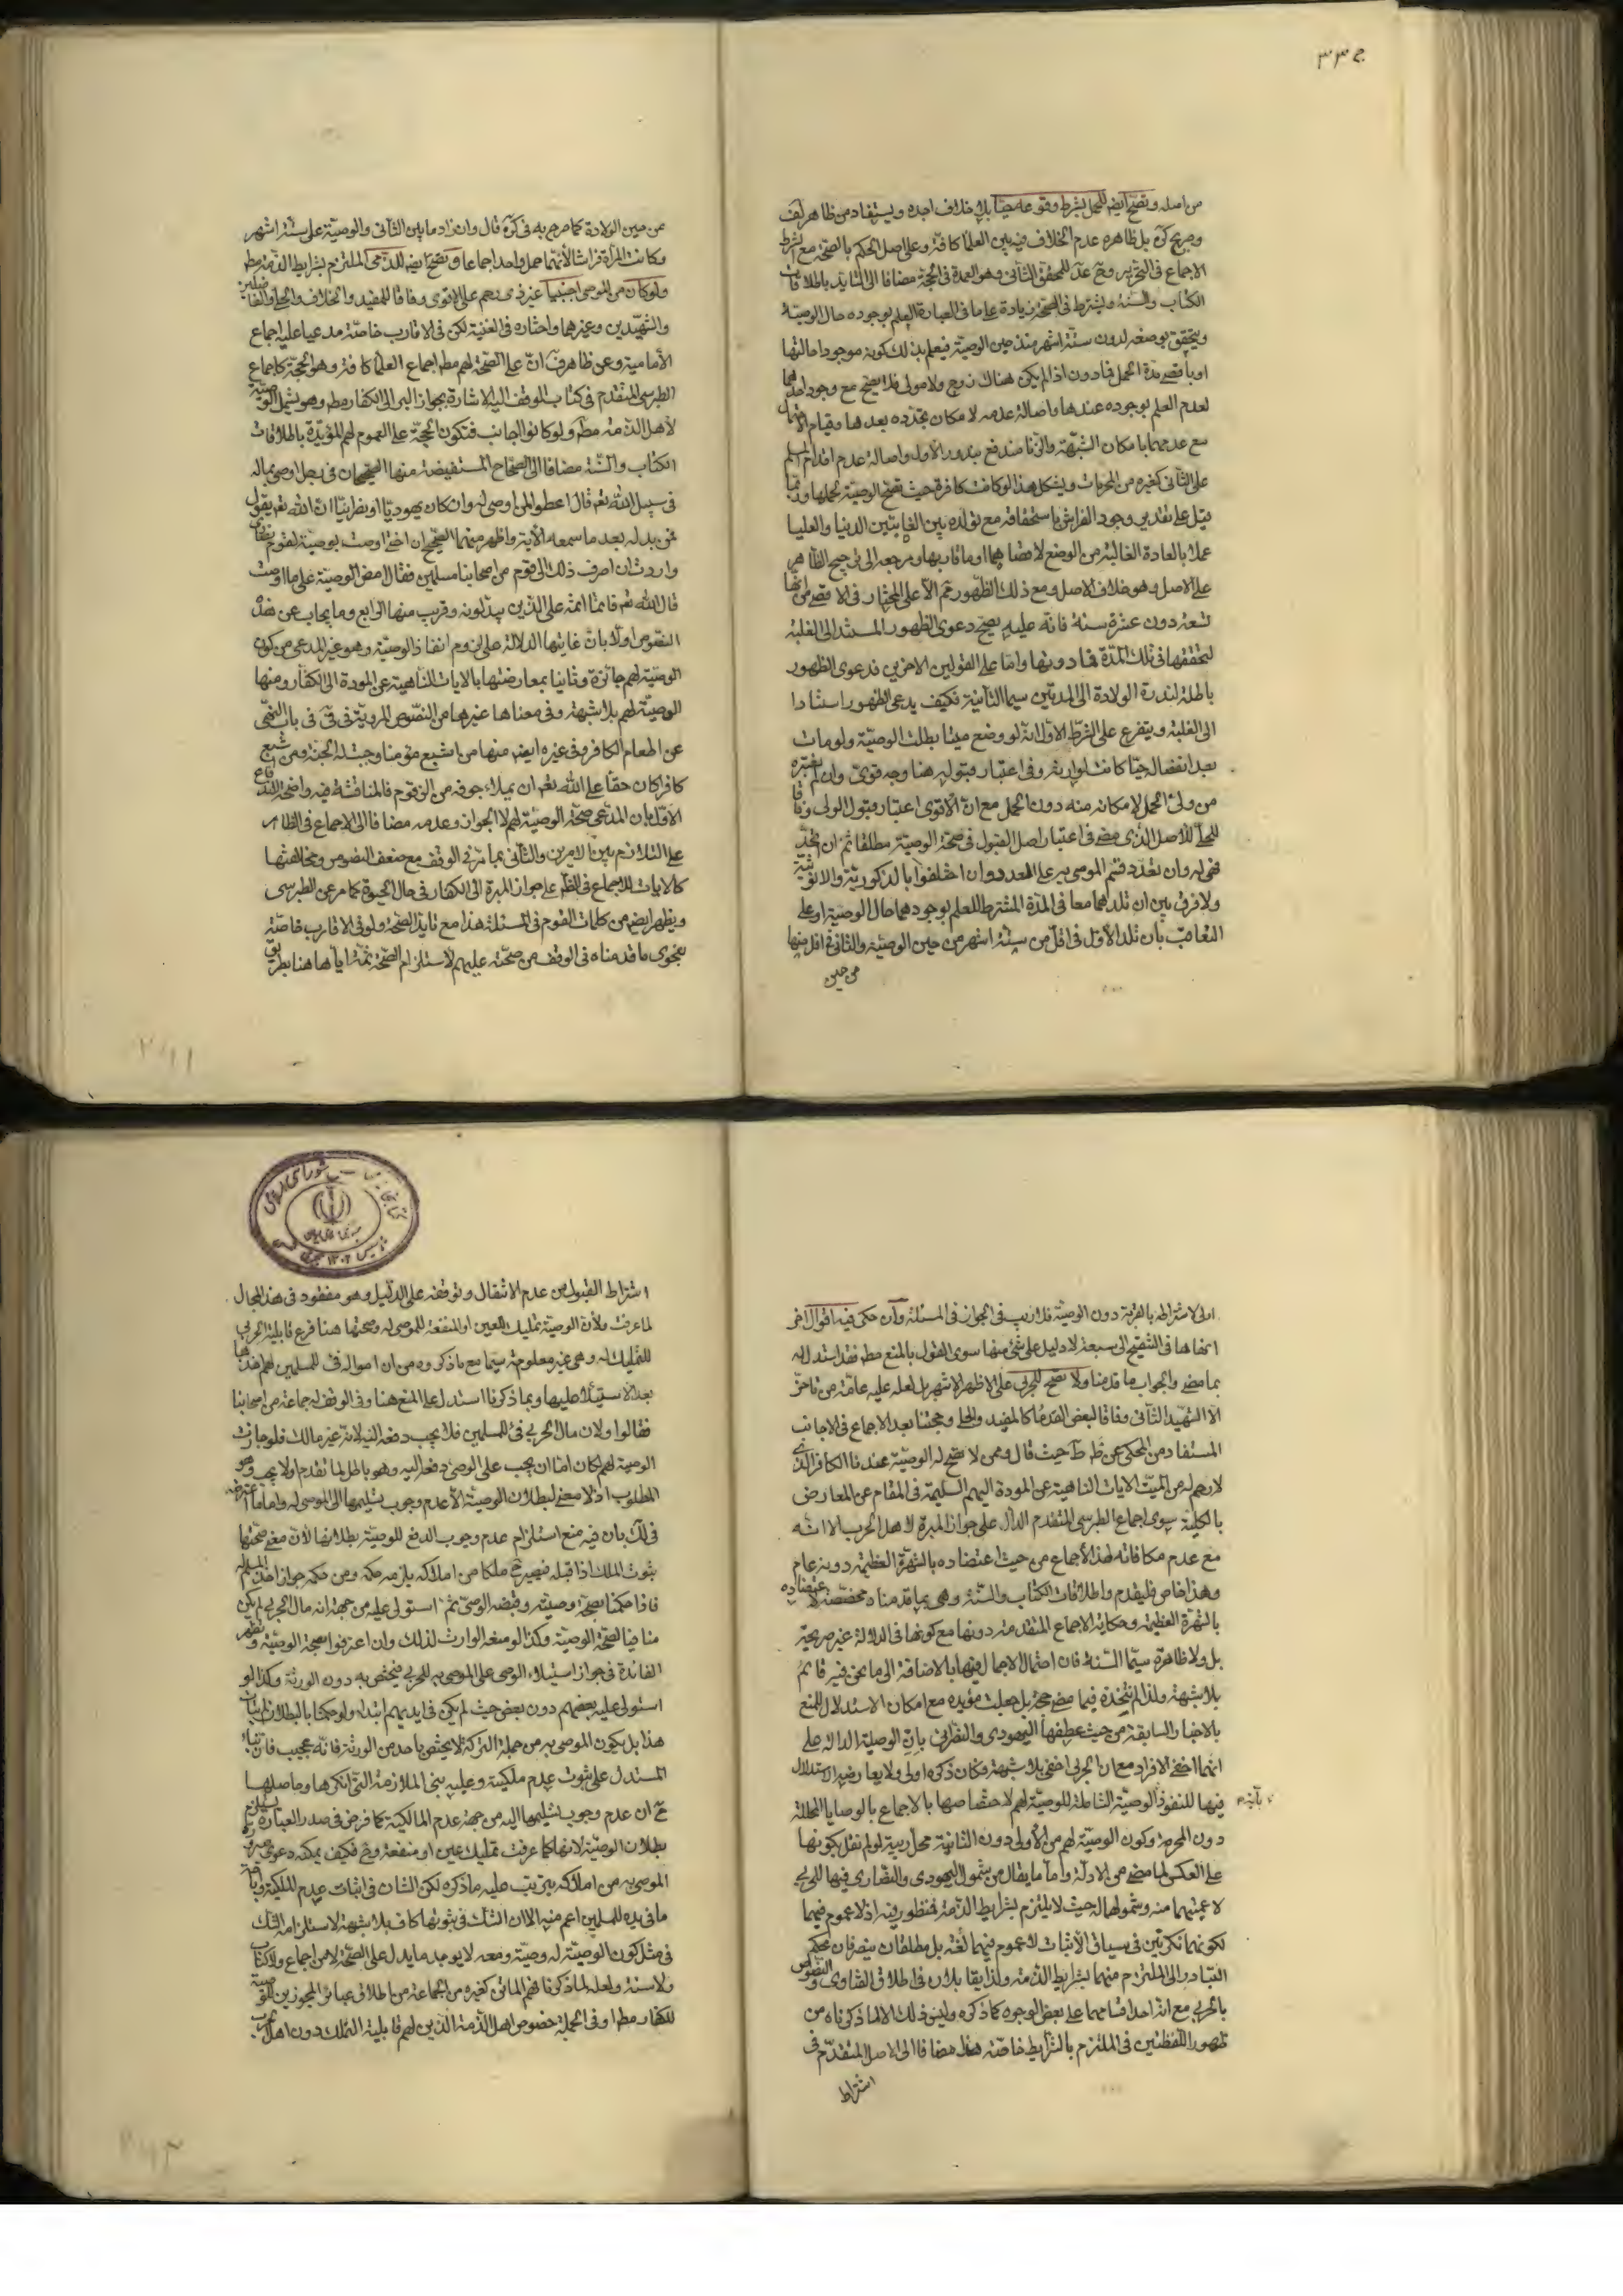 ٣٣٥
من اصله وتصح ايضا للحمل بشرط وقوعه حيا بلا خلاف اجده ويستفاد من ظاهر لف
وصريح كره بل ظاهره عدم الخلاف فيه بين العلماء كافة وعلى اصل الحكم بالصحة مع الشرط
الاجماع في التحرير وعن المحقق الثاني وهو العمدة في الحجة مضافا الى التايد باطلاقات
الكتاب والسنة ويشترط في الصحة زيادة على ما في العبارة العلم بوجوده حال الوصية
ويتحقق بوضعه لدون ستة اشهر منذ حين الوصية فيعلم بذلك كونه موجودا حالتها
او باقصى مدة الحمل فما دون اذا لم يكن هناك زوج ولا مولى فلا يصح مع وجود احدهما
لعدم العلم بوجوده عندها واصالة عدمه لامكان تجدده بعدها وقيام الاحتمال
مع عدمهما بامكان الشبهة والزنا مندفع بندور الاول واصالة عدم اقدام المسلم
على الثاني كغيره من المحرمات ويشكل هذا لو كانت كافرة حيث تصح الوصية لحملها وربما
قيل على تقدير وجود الفراش باستحقاقه مع تولده بين الغايتين الدنيا والعليا
عملا بالعادة الغالبة من الوضع لاقصاهما او ما قاربها ومرجعه الى ترجيح الظاهر
على الاصل وهو خلاف الاصل ومع ذلك الظهور لا يتم الا على المختار في الاقصى من انها
تسعة دون عشرة سنة فانه عليه يصح دعوى الظهور المستند الى الغلبة
لتحققها في تلك المدة فما دونها واما على القولين الاخرين فدعوى الظهور
باطلة لندرة الولادة الى المدتين سيما الثانية فكيف يدعى الظهور استنادا
الى الغلبة ويتفرع على الشرط الاول انه لو وضع ميتا بطلت الوصية ولو مات
بعد انفصاله حيا كانت لوارثه وفي اعتبار قبوله هنا وجه قوي وان لم نعتبره
من ولي الحمل لامكانه منه دون الحمل مع ان الاقوى اعتبار قبول الولي وفاقا
للحلي للاصل الذي مضى في اعتبار اصل القبول في صحة الوصية مطلقا ثم ان اتحد
فهي له وان تعدد قسم الموصى به على العدد وان اختلفوا بالذكورية والانوثية
ولا فرق بين ان تلدهما معا في المدة المشترطة للعلم بوجودهما حال الوصية او على
التعاقب بان تلد الاول في اقل من ستة اشهر من حين الوصية والثاني في اقل منها
من حين
من حين الولادة كما صرح به في كره قال وان زاد ما بين الثاني والوصية على ستة اشهر
وكانت المرأة فراشا لانهما حمل واحد اجماعا وتصح ايضا للذمي الملتزم بشرايط الذمة مط
ولو كان من الموصي اجنبيا غير ذي رحم على الاقوى وفاقا للمفيد والخلاف والحلي والفاضلين
والشهيدين وغيرهما واختاره في الغنية لكن في الاقارب خاصة مدعيا عليه اجماع
الامامية وعن ظاهر ف ان على الصحة لهم مط اجماع العلماء كافة وهو الحجة كاجماع
الطبرسي المتقدم في كتاب الوقف اليه الاشارة بجواز البر الى الكفار مط وهو يشمل الوصية
لاهل الذمة مط ولو كانوا اجانب فتكون الحجة على العموم لهم المؤيدة باطلاقات
الكتاب والسنة مضافا الى الصحاح المستفيضة منها الصحيحان في رجل اوصى بماله
في سبيل الله تعم قال اعطوا لمن اوصى له وان كان يهوديا او نصرانيا ان الله تعم يقول
فمن بدله بعد ما سمعه الاية واظهر منهما الصحيح ان اختي اوصت بوصية لقوم نصارى
واردت ان اصرف ذلك الى قوم من اصحابنا مسلمين فقال امض الوصية على ما اوصت
قال الله تعم فانما اثمه على الذين يبدلونه وقريب منها الرابع وما يجاب عن هذه
النصوص اولا بان غايتها الدلالة على لزوم انفاذ الوصية وهو غير المدعى من كون
الوصية لهم جائزة وثانيا بمعارضتها بالايات الناهية عن المودة الى الكفار ومنها
الوصية لهم بلا شبهة وفي معناها غيرها من النصوص المروية في في في باب النهي
عن اطعام الكافر وفي غيره ايضا منها من اشبع مؤمنا وجبت له الجنة ومن اشبع
كافرا كان حقا على الله تعم ان يملاء جوفه من الزقوم فالمناقشة فيه واضحة لاندفاع
الاول بان المدعى صحة الوصية لهم لا الجواز وعدمه مضافا الى الاجماع في الظاهر
على التلازم بين الامرين والثاني بما مر في الوقف مع ضعف النصوص ومخالفتها
كالايات للاجماع في الظم على جواز المبرة الى الكفار في حال الحيوة كما مر عن الطبرسي
ويظهر ايضا من كلمات القوم في المسئلة هذا مع تايد الصحة ولو في الاقارب خاصة
بفحوى ما قدمناه في الوقف من صحته عليهم لاستلزام الصحة ثمة اياها هنا بطريق
اولى لاشتراطه بالقربة دون الوصية فلا ريب في الجواز في المسئلة وان حكى فيه اقوال اخر
انهاها في التنقيح الى سبعة لا دليل على شئ منها سوى القول بالمنع مط فقد استدل له
بما مضى والجواب ما قدمنا ولا تصح للحربي على الاظهر الاشهر بل لعله عليه عامة من تاخر
الا الشهيد الثاني وفاقا لبعض القدماء كالمفيد والحلي وحجتنا بعد الاجماع في الاجانب
المستفاد من المحكي عن ظ ط حيث قال وممن لا تصح له الوصية عندنا الكافر الذي
لا رحم له من الميت الايات الناهية عن المودة اليهم السليمة في المقام عن المعارض
بالكلية سوى اجماع الطبرسي المتقدم الدال على جواز المبرة لاهل الحرب الا انه
مع عدم مكافاته لهذا الاجماع من حيث اعتضاده بالشهرة العظيمة دونه عام
وهذا خاص فليقدم واطلاقات الكتاب والسنة وهي بما قدمناه مخصصة لاعتضاده
بالشهرة العظيمة وحكاية الاجماع المتقدمة دونها مع كونها في الدلالة غير صريحة
بل ولا ظاهرة سيما السنة فان احتمال الاجمال فيها بالاضافة الى ما نحن فيه قائم
بلا شبهة ولذا لم نتخذه فيما مضى حجة بل جعلت مؤيده مع امكان الاستدلال للمنع
بالاخبار السابقة من حيث عطفها اليهودي والنصراني بان الوصلية الدالة على
انهما اخفى الافراد مع ان الحربي اخفى بلا شبهة فكان ذكره اولى ولا يعارضه الاستدلال
فيها للنفوذ الوصية الشاملة للوصية لهم لاختصاصها بالاجماع بالوصايا المحللة
دون المحرمة وكون الوصية لهم من الاولى دون الثانية محل ريبة لو لم نقل بكونها
على العكس لما مضى من الادلة واما ما يقال من شمول اليهودي والنصارى فيها للحربي
لاعميتهما منه وشمولهما له حيث لا يلتزم بشرايط الذمة فمنظور فيه اذ لا عموم فيهما
لكونهما نكرتين في سياق الاثبات لا عموم فيهما لغة بل مطلقان ينصرفان بحكم
التبادر الى الملتزم منهما بشرايط الذمة ولذا يقابلان في اطلاق الفتاوى والنصوص
بالحربي مع انه احد اقسامهما على بعض الوجوه كما ذكره وليس ذلك الا لما ذكرناه من
ظهور اللفظتين في الملتزم بالشرايط خاصة هذا مضافا الى الاصل المتقدم في
اشتراط
اشتراط القبول من عدم الانتقال وتوقفه على الدليل وهو مفقود في هذا المجال
لما عرفت ولان الوصية تمليك العين او المنفعة للموصى له وصحتها هنا فرع قابلية الحربي
للتمليك له وهي غير معلومة سيما مع ما ذكروه من ان امواله فئ للمسلمين لهم اخذها
بعد الاستيلاء عليها وبما ذكرنا استدل على المنع هنا وفي الوقف له جماعة من اصحابنا
فقالوا ولان مال الحربي فئ للمسلمين فلا يجب دفعه اليه لانه غير مالك فلو جازت
الوصية لهم لكان اما ان يجب على الوصي دفعه اليه وهو باطل لما تقدم اولا يجب وهو
المطلوب اذ لا معنى لبطلان الوصية الا عدم وجوب تسليمها الى الموصى له واما ما اعترضه
في لك بان فيه منع استلزام عدم وجوب الدفع للوصية بطلانها لان معنى صحتها
ثبوت الملك اذا قبله فيصير ح ملكا من املاكه يلزمه حكمه ومن حكمه جواز اخذ المسلم له
فاذا حكمنا بصحة وصيته وقبضه الوصي ثم استولى عليه من جهة انه مال الحربي لم يكن
منافيا لصحة الوصية وكذا لو منعه الوارث لذلك وان اعترفوا بصحة الوصية وتظهر
الفائدة في جواز استيلاء الوصي على الموصى به للحربي فيختص به دون الورثة وكذا لو
استولى عليه بعضهم دون بعض حيث لم يكن في ايديهم ابتداء ولو حكمنا بالبطلان لم يتات
هذا بل يكون الموصى به من جملة التركة لا يختص باحد من الورثة فانه عجيب فان بناء
المستدل على ثبوت عدم ملكيته وعليه بنى الملازمة التي انكرها وحاصلها
ح ان عدم وجوب تسليمها اليه من جهة عدم المالكية كما فرض في صدر العبارة يستلزم
بطلان الوصية لانها كما عرفت تمليك عين او منفعة وح فكيف يمكنه دعوى صيرورة
الموصى به من املاكه يترتب عليه ما ذكره لكن الشان في اثبات عدم الملكية وباحة
ما في يده للمسلمين اعم منه الا ان الشك في ثبوتها كاف بلا شبهة لاستلزامه الشك
في مثل كون الوصية له وصية ومعه لا يوجد ما يدل على الصحة لا من اجماع ولا كتاب
ولا سنة ولعله لما ذكرنا فهم الماتن كغيره من الجماعة من اطلاق عبائر المجوزين للوصية
للكفار مطا وفي الجملة خصوص اهل الذمة الذين لهم قابلية التملك دون اهل الحرب